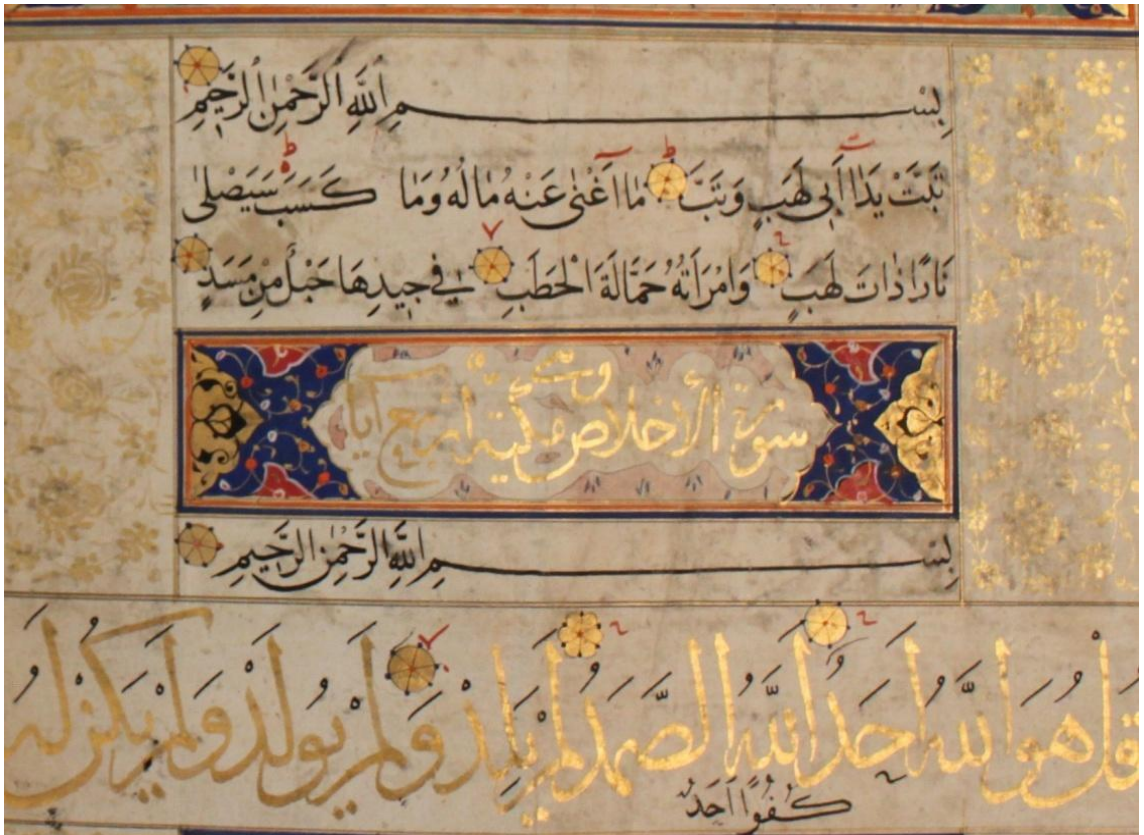 بِسْمِ اللَّهِ الرَّحْمٰنِ الرَّحِيمِ
تَبَّتْ يَدَا أَبِي لَهَبٍ وَتَبَّ مَا أَغْنٰى عَنْهُ مَالُهُ وَمَا كَسَبَ سَيَصْلٰى
نَارًا ذَاتَ لَهَبٍ وَامْرَأَتُهُ حَمَّالَةَ الْحَطَبِ فِي جِيدِهَا حَبْلٌ مِنْ مَسَدٍ
سورة الاخلاص مكية اربع آيات
بِسْمِ اللَّهِ الرَّحْمٰنِ الرَّحِيمِ
قُلْ هُوَ اللَّهُ اَحَدٌ اَللَّهُ الصَّمَدُ لَمْ يَلِدْ وَلَمْ يُولَدْ وَلَمْ يَكُنْ لَهُ
كُفُوًا اَحَدٌ